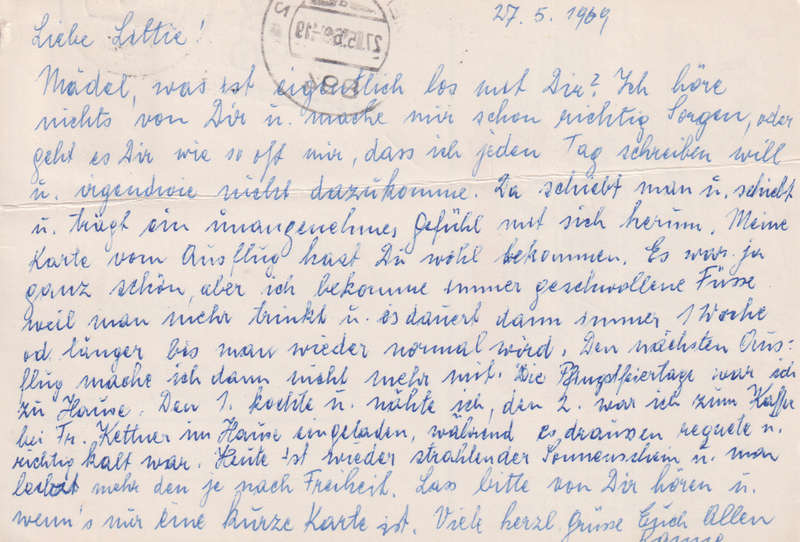 27. 5. 1969
Liebe Lottie!
Mädel, was ist eigentlich los mit Dir? Ich höre
nichts von Dir u. mache mir schon richtig Sorgen, oder
geht es Dir wie so oft mir, dass ich jeden Tag schreiben will
u. irgendwie nicht dazukomme. Da schiebt man u. schiebt
u. trägt ein unangenehmes Gefühl mit sich herum. Meine
Karte vom Ausflug hast Du wohl bekommen. Es war ja
ganz schön, aber ich bekomme immer geschwollene Füsse
weil man mehr trinkt u. es dauert dann immer 1 Woche
od. länger bis man wieder normal wird. Den nächsten Aus-
flug mache ich dann nicht mehr mit. Die Pfingstfeiertage war ich
zu Hause. Den 1. kochte u. nähte ich, den 2. war ich zum Kaffe
bei Fr. Kettner im Hause eingeladen, während es draussen regnete u.
richtig kalt war. Heute ist wieder strahlender Sonnenschein u. man
mehr den je nach Freiheit. Lass bitte von Dir hören u.
wenn's nur eine kurze Karte ist. Viele herzl. Grüsse Euch Allen